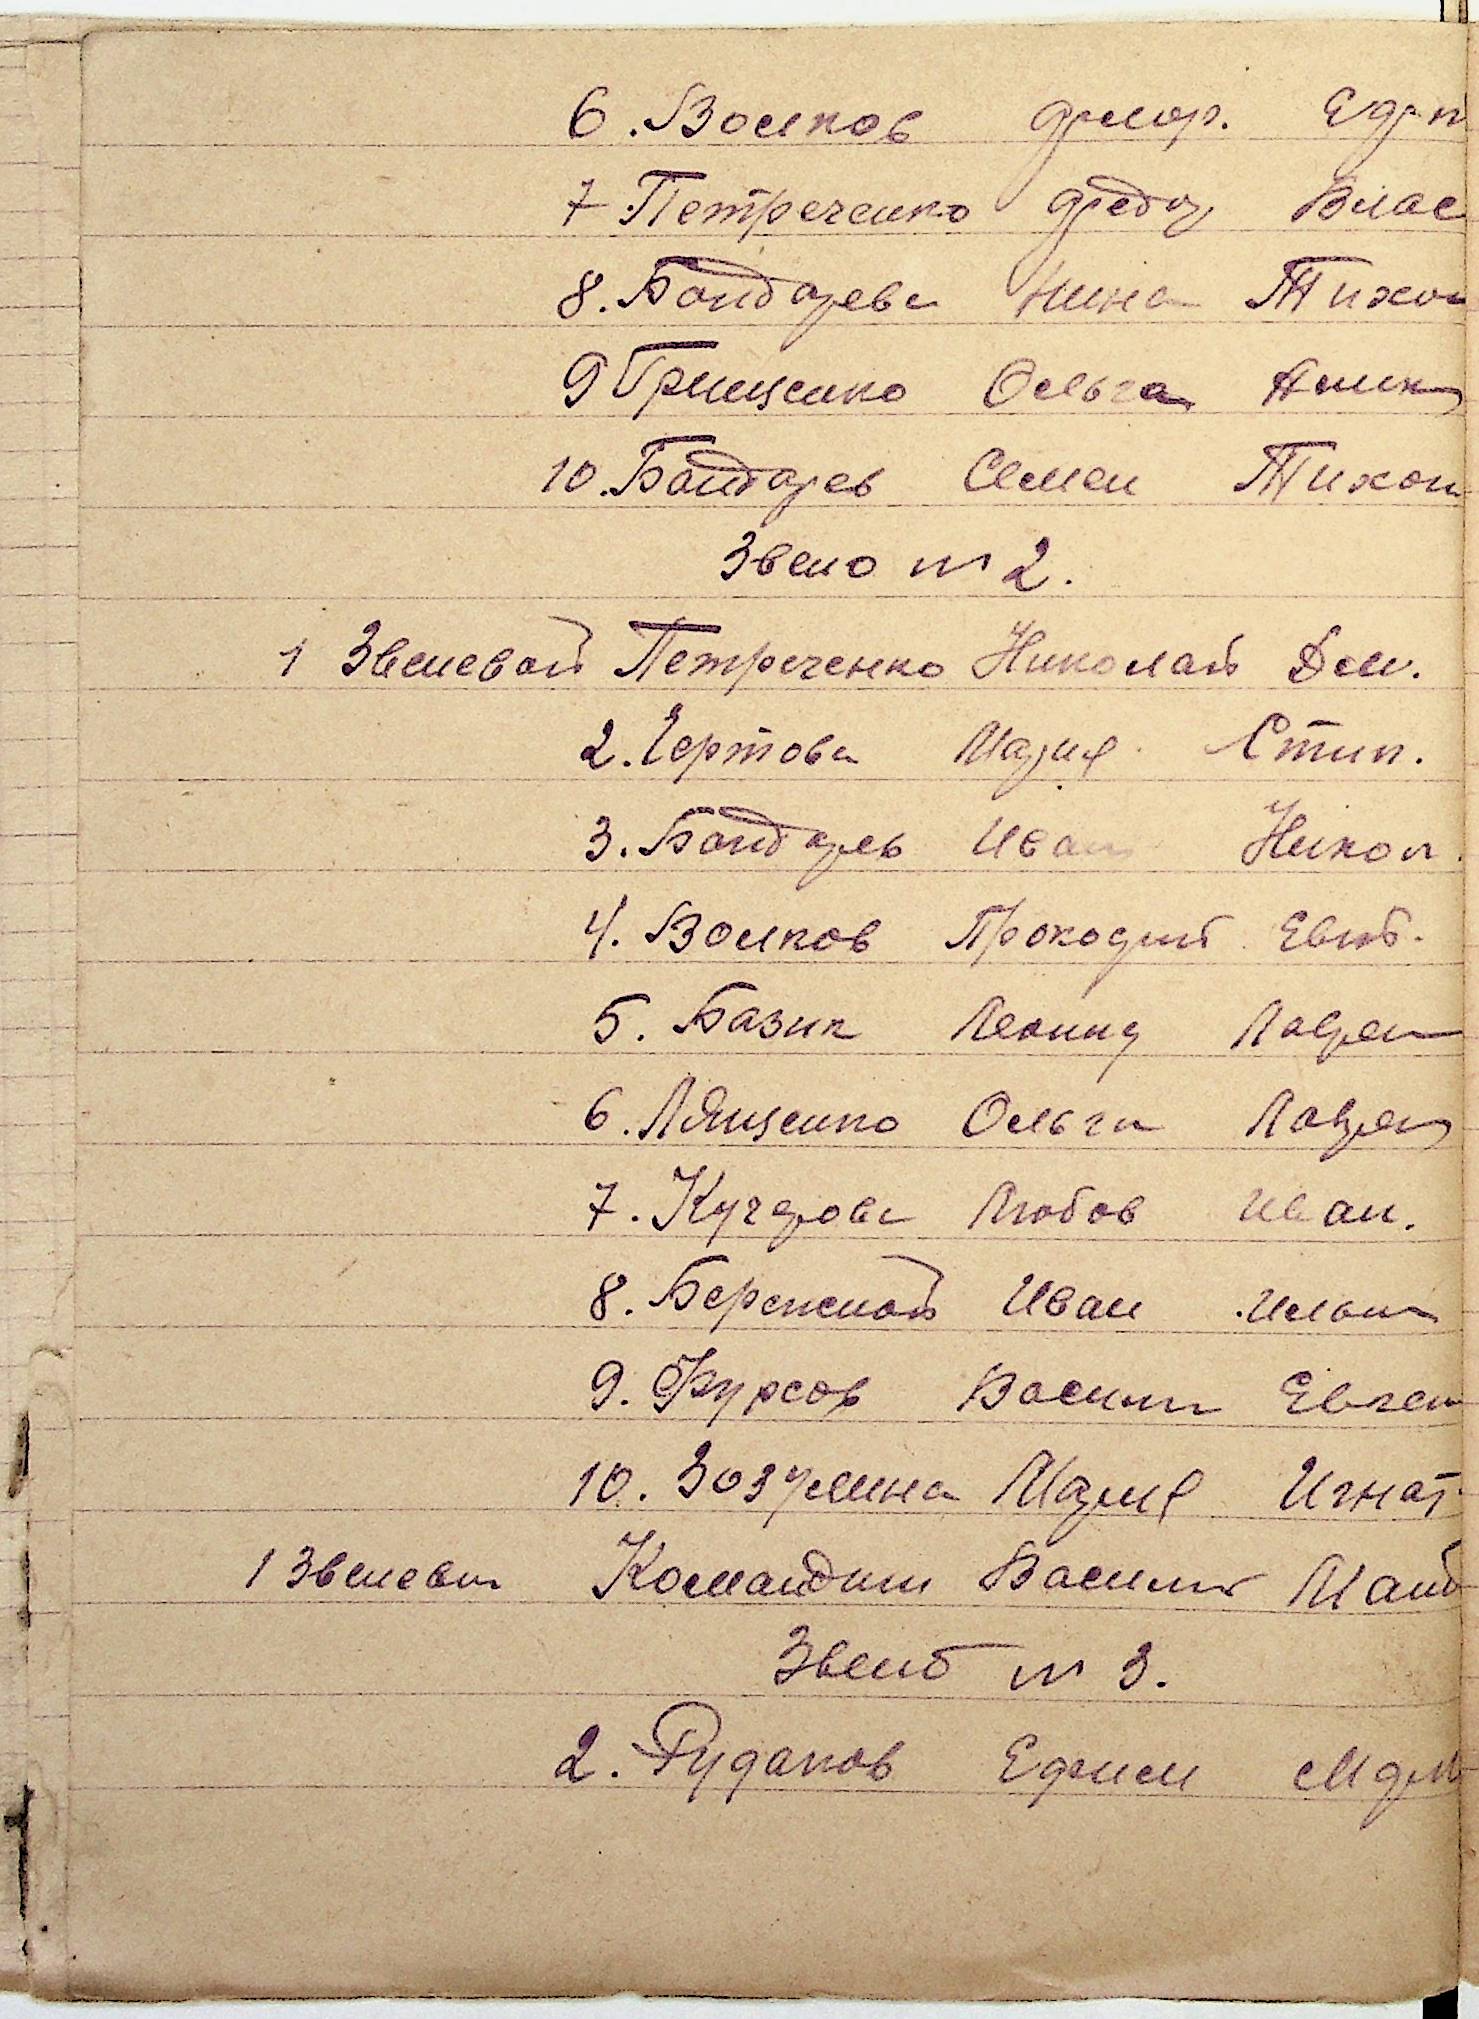 6. Волков Фмор. Едр
7 Петреченко Федор Влас
8. Бондарева Нина Тихон
9 Грищенко Ольга Аник
10. Бондарев Семен Тихон
Звено № 2.
1 Звеневой Петреченко Николай Дем.
2. Чертова Мария Стип.
3. Бондарев Иван Никол.
4. Волков Прокофий Евст.
5. Базик Леонид Лаврен
6. Лященко Ольга Лаврен
7. Кучерова Любов Иван.
8. Бережной Иван Ильич
9. Фурсов Василий Евген
10. Зозулина Мария Игнат
1 Звеневой Командин Василий
Звено № 3.
2. Рудаков Ефим